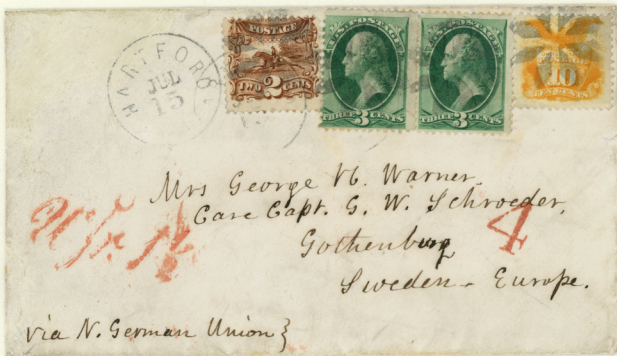 HARTFORD
JUL
15
POSTAGE
TWO 2 CENTS
U.S. POSTAGE
THREE 3 CENTS
U.S. POSTAGE
THREE 3 CENTS
10
TEN CENTS
Mrs George H. Warner
Care Capt. G. W. Schroeder,
Gothenburg
Sweden - Europe.
4
via N. German Union